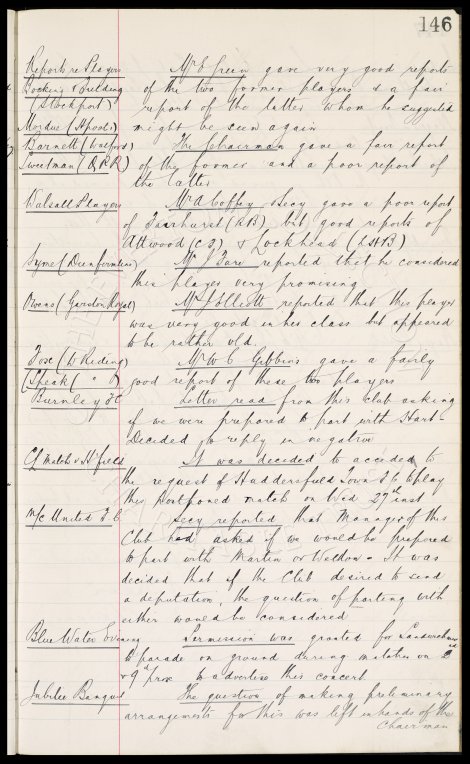 146
Reports re Players Mr E Green gave very good reports
Bocking & Building of the two former players & a fair
(Stockport) report of the latter whom he suggested
Mordue (Hpools) might be seen again
Barnett (Watford) The Chairman gave a fair report
Sweetman (Q P R) of the former and a poor report of
the latter
Walsall Players Mr A Coffey Secy gave a poor report
of Fairhurst (R B) but good reports of
Attwood (C F) & Lockhead (L H B)
Syme (Dunfermline) Mr J Fare reported that he considered
this player very promising
Owens (Garston Royal) Mr Jolliott reported that this player
was very good in his class but appeared
to be rather old.
Fox (W Riding) Mr W C Gibbins gave a fairly
Speak ( " " ) good report of these two players
Burnley F C Letter read from this club asking
if we were prepared to part with Hart-
Decided to reply in negative
CL Match v H'field It was decided to accede to
the request of Huddersfield Town F C to play
this Postponed match on Wed 27th inst
M/c United F. C. Secy reported that Manager of this
Club had asked if we would be prepared
to part with Martin or Weldon - It was
decided that if the Club desired to send
a deputation, the question of parting with
either would be considered
Blue Water Evening Permission was granted for Sandwichmen
to parade on ground during matches on 2nd
& 9th prox to advertise this concert
Jubilee Banquet The question of making preliminary
arrangements for this was left in hands of the
Chairman